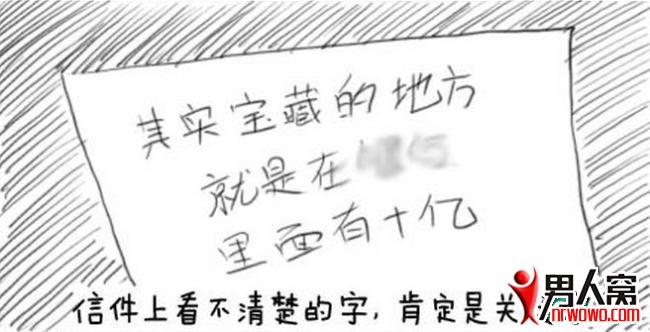 其实宝藏的地方
就是在
里面有十亿
信件上看不清楚的字，肯定是关
男人窝
nrwowo.com